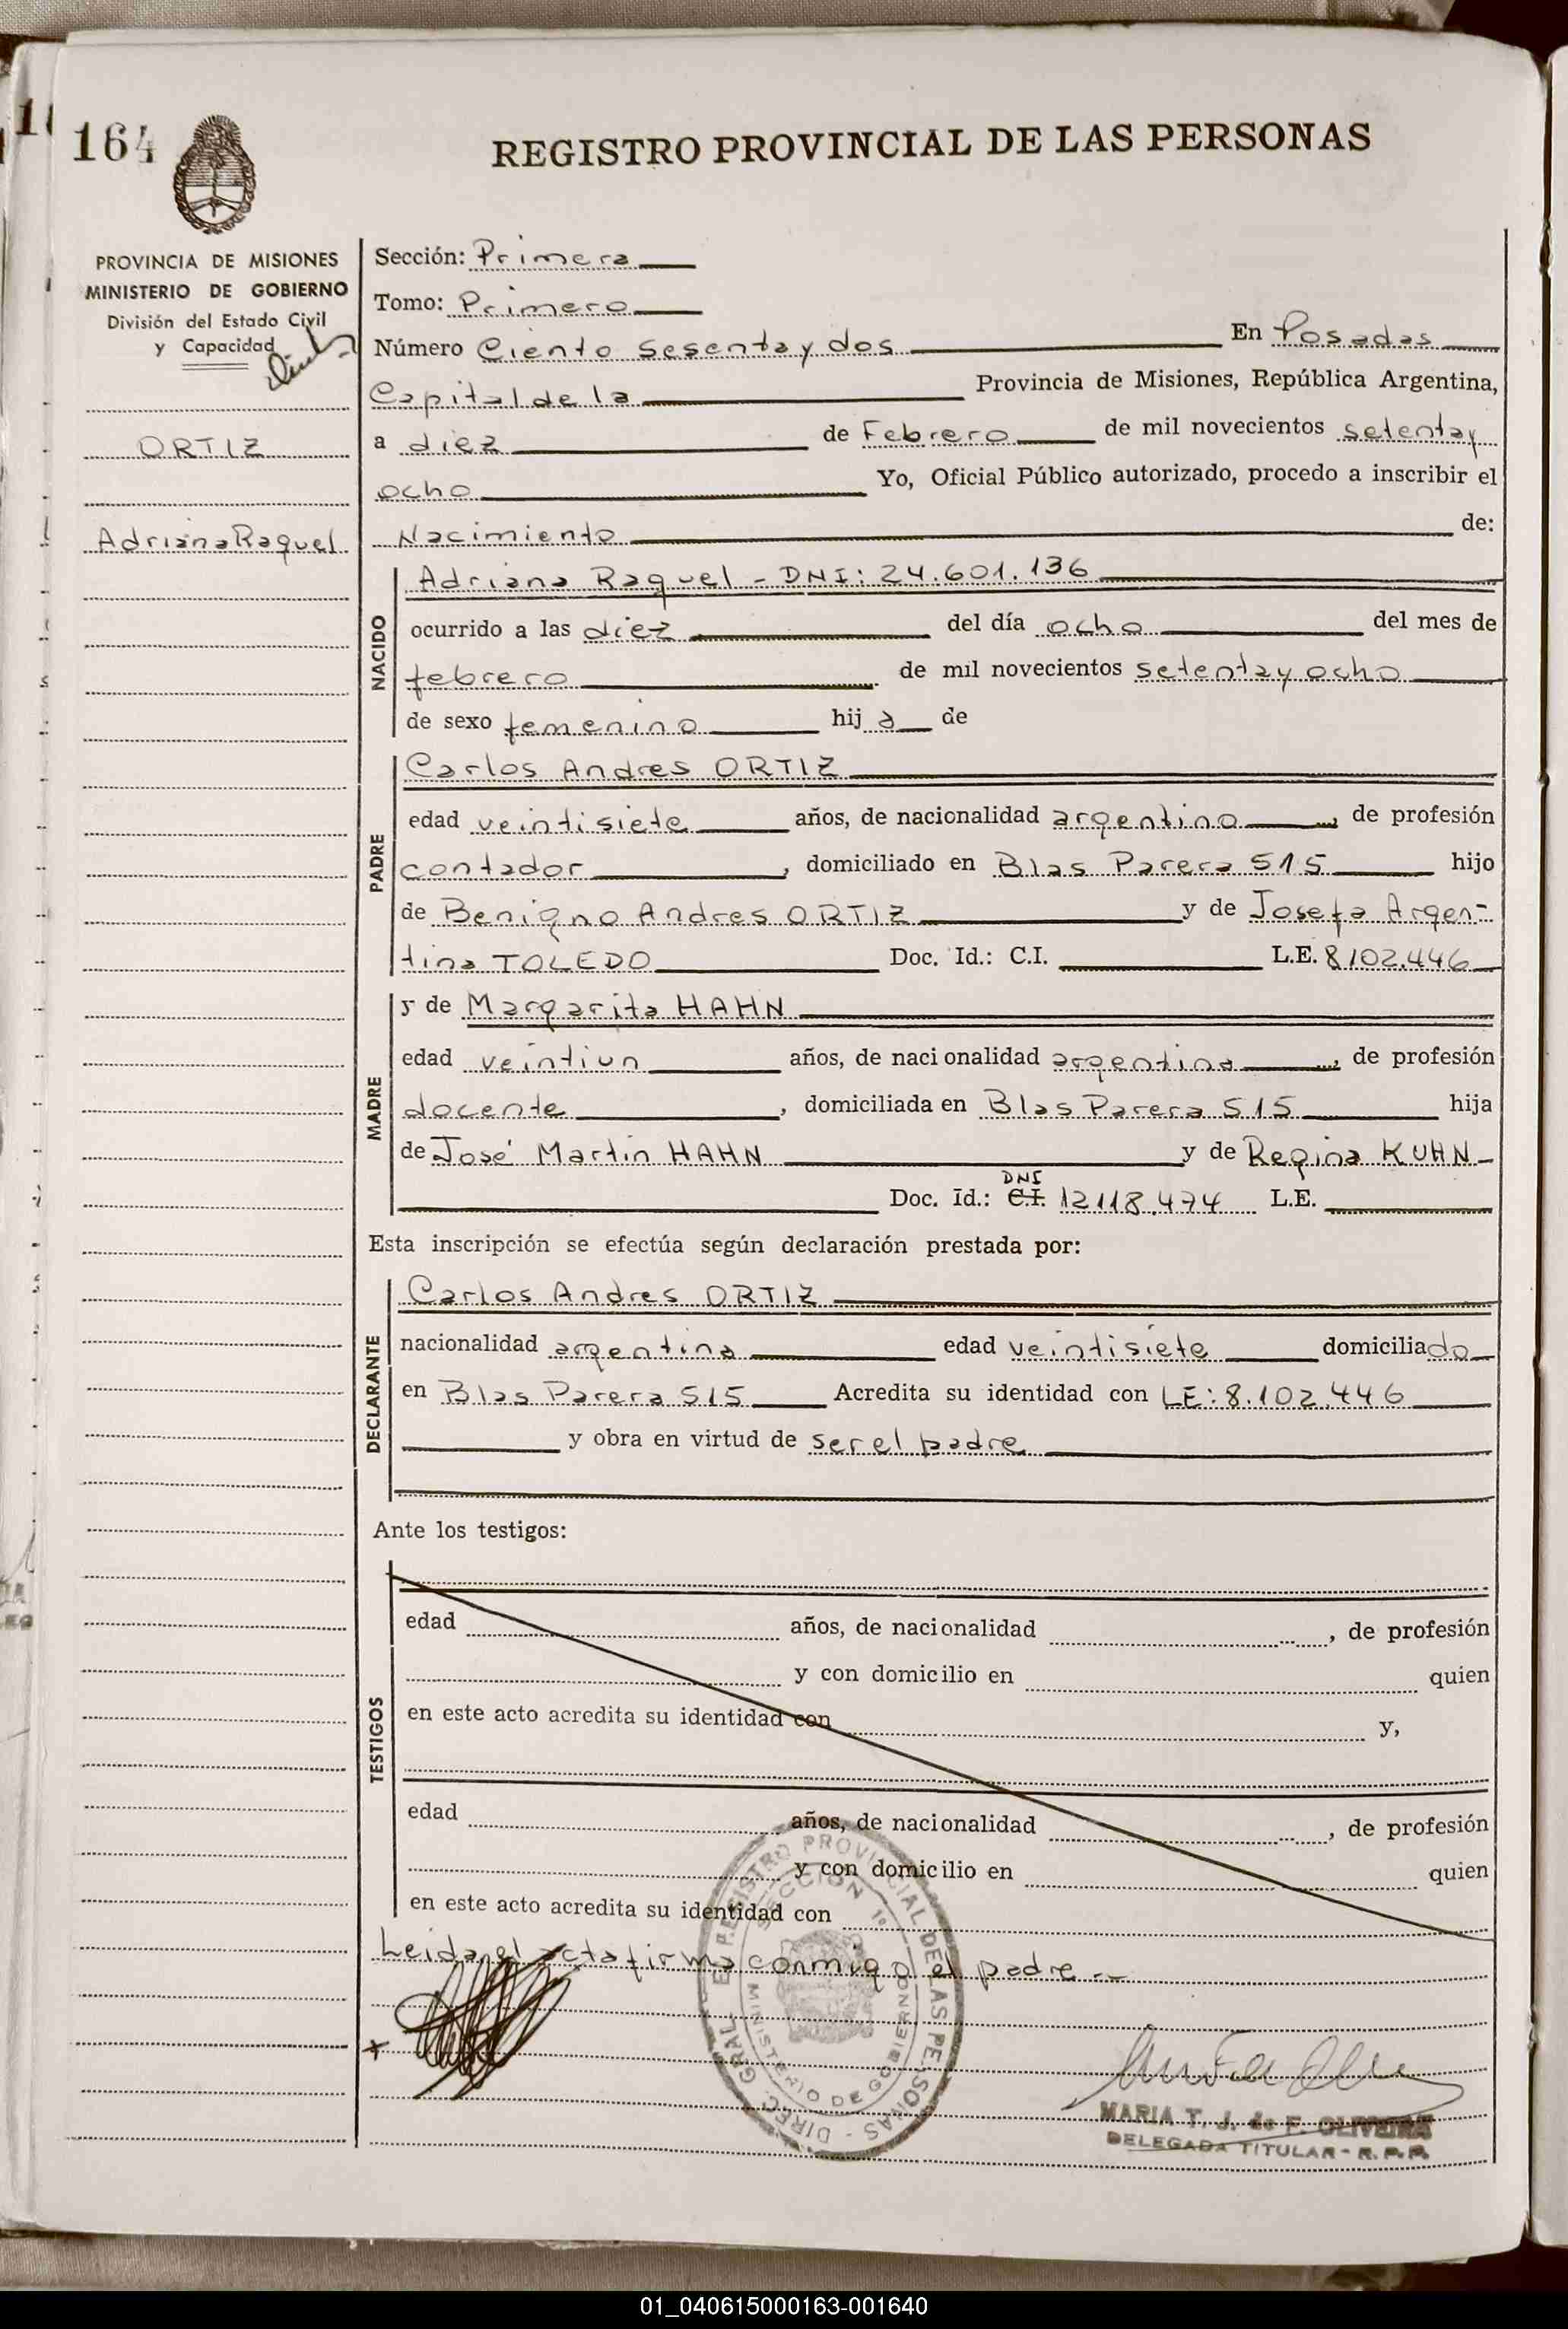 164
REGISTRO PROVINCIAL DE LAS PERSONAS
PROVINCIA DE MISIONES
MINISTERIO DE GOBIERNO
División del Estado Civil
y Capacidad
ORTIZ
Adriana Raquel
Sección: Primera
Tomo: Primero
Número Ciento sesenta y dos En Posadas
Capital de la Provincia de Misiones, República Argentina,
a diez de Febrero de mil novecientos setenta y
ocho Yo, Oficial Público autorizado, procedo a inscribir el
Nacimiento de:
NACIDO
Adriana Raquel - DNI: 24.601.136
ocurrido a las diez del día ocho del mes de
febrero de mil novecientos setenta y ocho
de sexo femenino hija de
PADRE
Carlos Andres ORTIZ
edad veintisiete años, de nacionalidad argentino, de profesión
contador, domiciliado en Blas Parera 515 hijo
de Benigno Andres ORTIZ y de Josefa Argen-
tina TOLEDO Doc. Id.: C.I. L.E. 8102.446
MADRE
y de Margarita HAHN
edad veintiun años, de nacionalidad argentina, de profesión
docente, domiciliada en Blas Parera 515 hija
de José Martin HAHN y de Regina KUHN-
DNI
Doc. Id.: C.I. 12118.474 L.E.
Esta inscripción se efectúa según declaración prestada por:
DECLARANTE
Carlos Andres ORTIZ
nacionalidad argentina edad veintisiete domiciliado
en Blas Parera 515 Acredita su identidad con LE: 8.102.446
y obra en virtud de ser el padre
Ante los testigos:
TESTIGOS
edad años, de nacionalidad , de profesión
y con domicilio en quien
en este acto acredita su identidad con y,
edad años, de nacionalidad , de profesión
y con domicilio en quien
en este acto acredita su identidad con
Leida el acta firma conmigo el padre.-
DIREC. GRAL. REGISTRO PROVINCIAL DE LAS PERSONAS
SECCION 1º
MINISTERIO DE GOBIERNO
MARIA T. J. de F. OLIVEIRA
DELEGADA TITULAR - R. P. P.
01_040615000163-001640